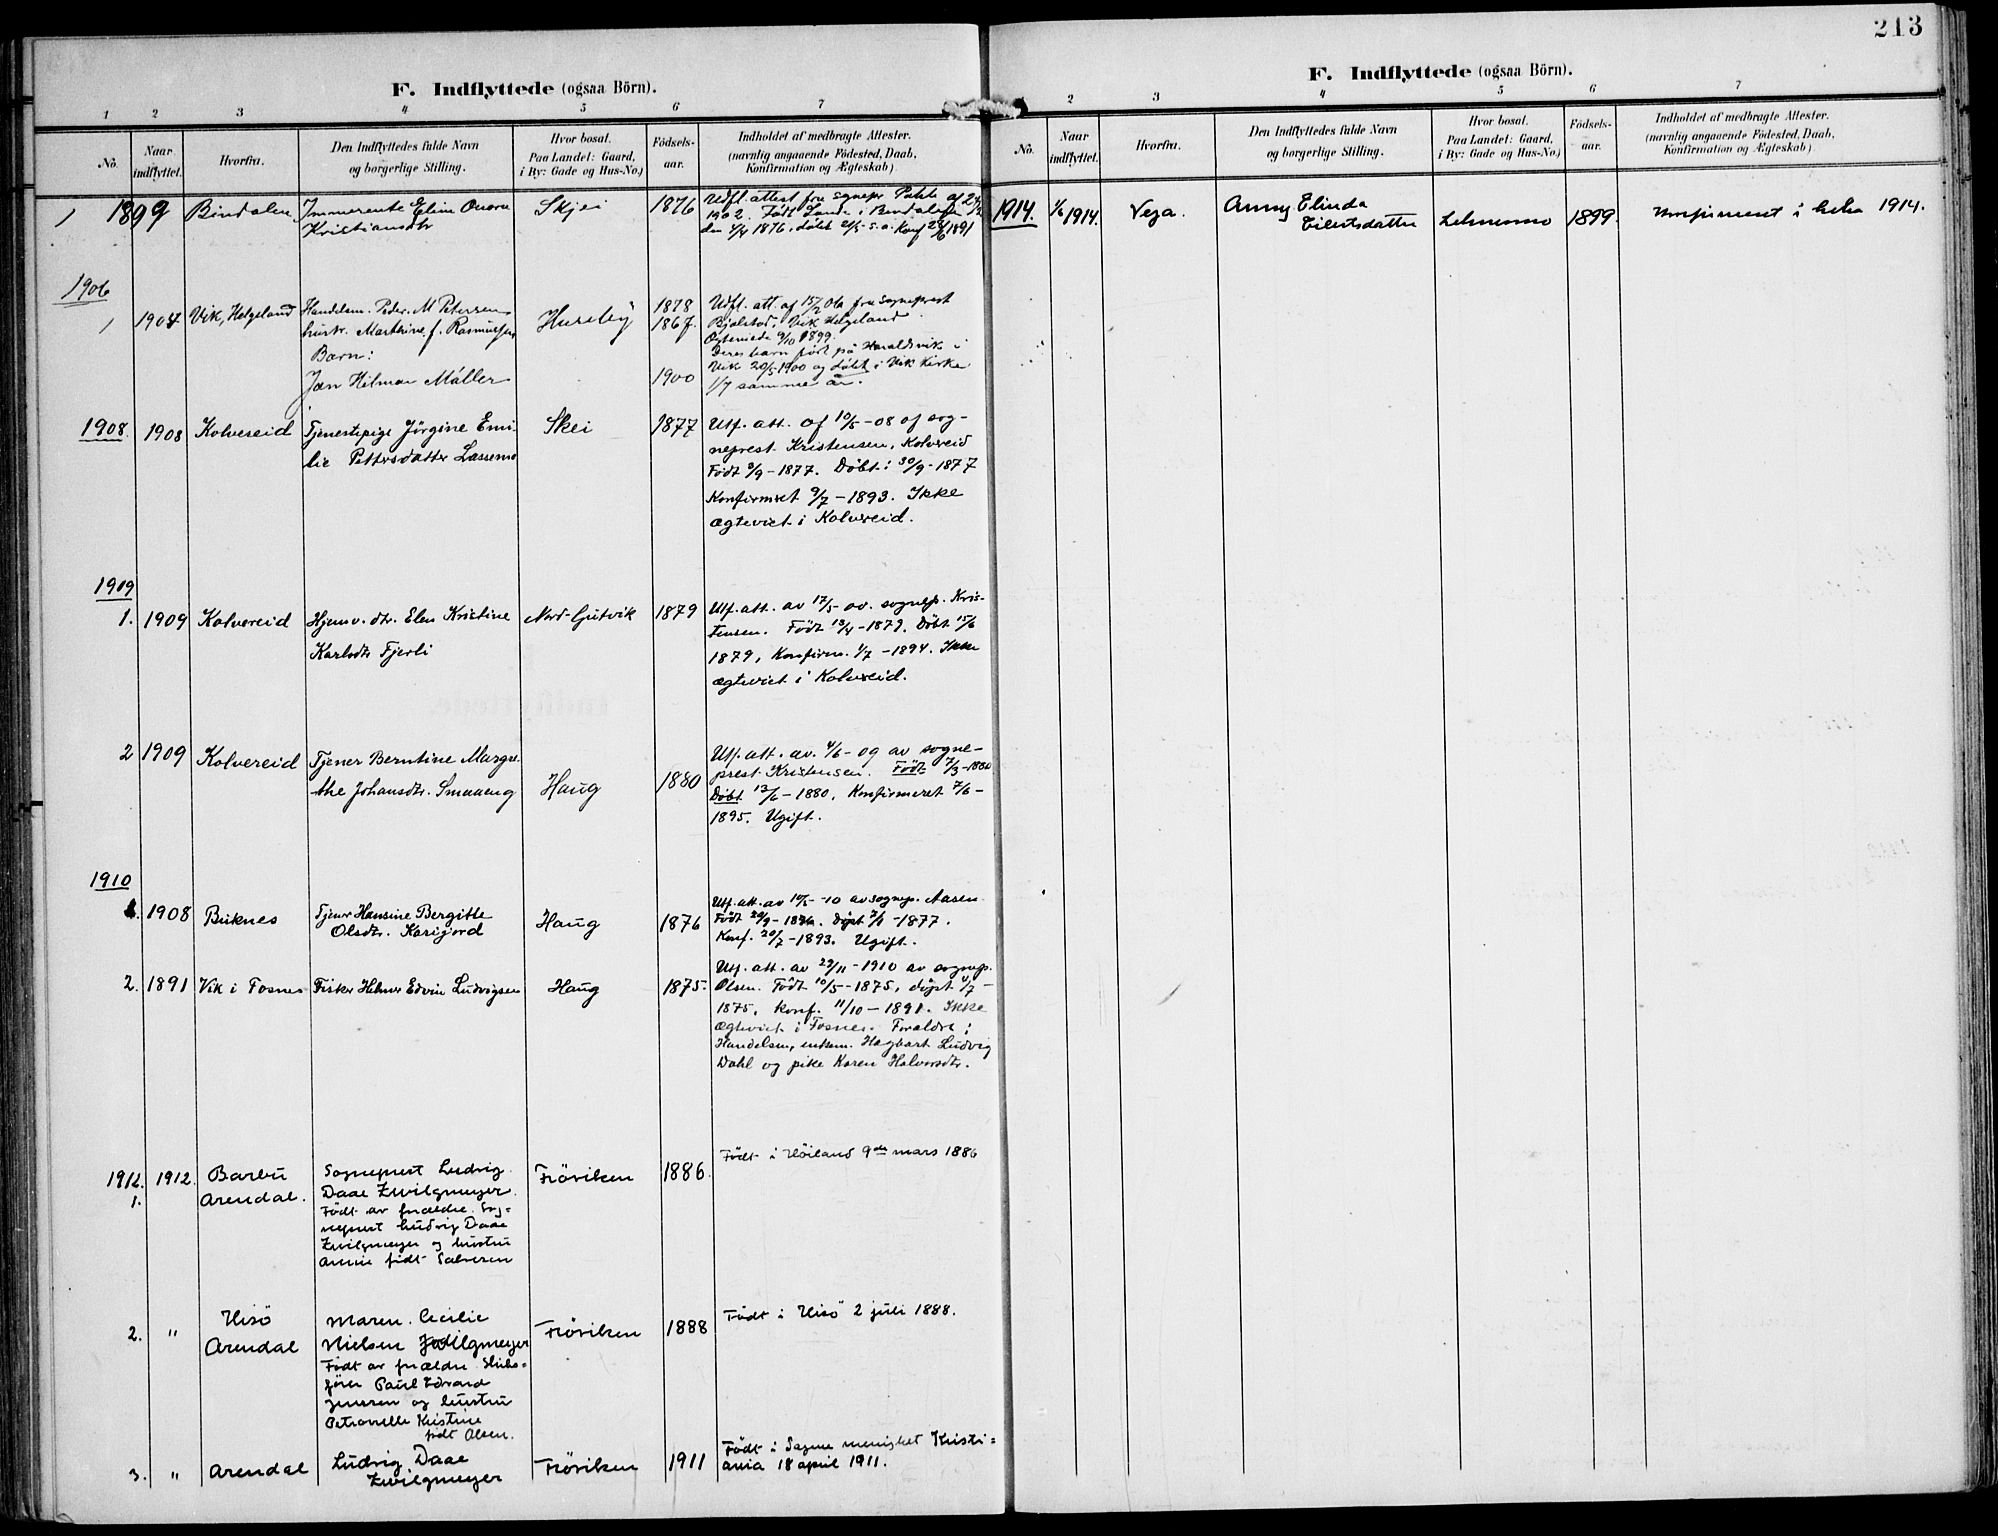 213
F. Indflyttede (ogsaa Börn).
1 2 3 4 5 6 7
No.
Naar indflyttet.
Hvorfra.
Den Indflyttedes fulde Navn
og borgerlige Stilling.
Hvor bosat.
Paa Landet: Gaard,
i By: Gade og Hus-No.)
Födsels-
aar.
Indholdet af medbragte Attester.
(navnlig angaaende Födested, Daab,
Konfirmation og Ægteskab)
1 1899 Bindalen Elen
Kristiansdtr
Skjei
1876
Udfl. attest fra sognepr.
1902. Født i Bindalen
den 1876, døbt s.a. Konf 1891
1906
1 1904 Vik, Helgeland
Handelsm. Peder M Petersen
hustr. Marthine f. Rasmussen
Barn:
Jan Hilmar Möller
Husby
1878
1867.
1900
Udfl. att. af 15/2 06 fra sogneprest
Vik Helgeland
9/10 1899.
Deres barn født på Haraldsvik i
Vik 20/5 1900 og døbt i Vik Kirke
1/7 samme år.
1908
1908 Kolvereid
Tjenestepige Jörgine Emi-
lie Pettersdatter Lassemo
Skei
1877
Utf. att. af 10/5-08 af sog-
neprest Kristensen, Kolvereid
Født 3/9-1877. Döbt: 30/9-1877
Konfirmeret 9/7-1893. Ikke
ægteviet i Kolvereid.
1909
1. 1909 Kolvereid
Hjemv. dtr. Elen Kristine
Karlsdtr Fjerli
Nord-Gutvik
1879
Utf. att. av 17/5 av. sognep. Kris-
tensen. Födt 13/4-1879. Döbt 15/6
1879, Konfirm. 1/7-1894. Ikke
ægteviet i Kolvereid.
2 1909 Kolvereid
Tjener Berntine Margre-
the Johansdtr. Smaaeng
Haug
1880
Utf. att. av. 4/6-09 av sogne-
prest Kristensen. Födt 7/3-1880
Döbt 13/6-1880. Konfirmeret 7/6-
1895. Ugift.
1910
1. 1908 Buknes
Tjener Hansine Bergitte
Olsdtr. Karijord
Haug
1876
Utf. att. av 10/5-10 av sognep. Aasen
Födt 29/9-1876. Döpt 7/1-1877.
Konf. 20/7-1893. Ugift.
2. 1891 Vik i Fosnes
Fisker Hilmar Edvin Ludvigsen
Haug
1875.
Utf. att. av 29/11-1910 av sognep.
Olsen. Födt 10/5-1875, döpt 4/7-
1875, konf. 11/10-1891. Ikke
ægteviet i Fosnes. Foraldre:
Handelsm, enkem. Hagbart Ludvig
Dahl og pike Karen Halvorsdtr.
1912.
1. 1912. Barbu
Arendal.
Sogneprest Ludvig
Daae Zwilgmeyer.
Födt av forældre. Sog-
neprest Ludvig Daae
Zwilgmeyer og hustru
Annie födt Salvesen
Fröviken
1886.
Födt i Höiland 9de mars 1886
2. " Hisö
Arendal
Maren. Cecilie
Nielsen Zwilgmeyer
Födt av forældre Skibs-
förer Paul Edvard
Jensen og hustru
Petronelle Kristine
födt Olsen.
Fröviken
1888
Födt i Hisö 2 juli 1888.
3. " Arendal
Ludvig Daae
Zwilgmeyer
Fröviken
1911
Födt i Sagene menighet Kristi-
ania 18 april 1911.
F. Indflyttede (ogsaa Börn).
1 2 3 4 5 6 7
No.
Naar
indflyttet.
Hvorfra.
Den Indflyttedes fulde Navn
og borgerlige Stilling.
Hvor bosat.
Paa Landet: Gaard,
i By: Gade og Hus-No.)
Födsels-
aar.
Indholdet af medbragte Attester.
(navnlig angaaende Födested, Daab,
Konfirmation og Ægteskab)
1914. 1/6 1914. Vega.
Anny Elinda
Eilertsdatter
Lehnesmo
1899.
Konfirmeret i Leka 1914.